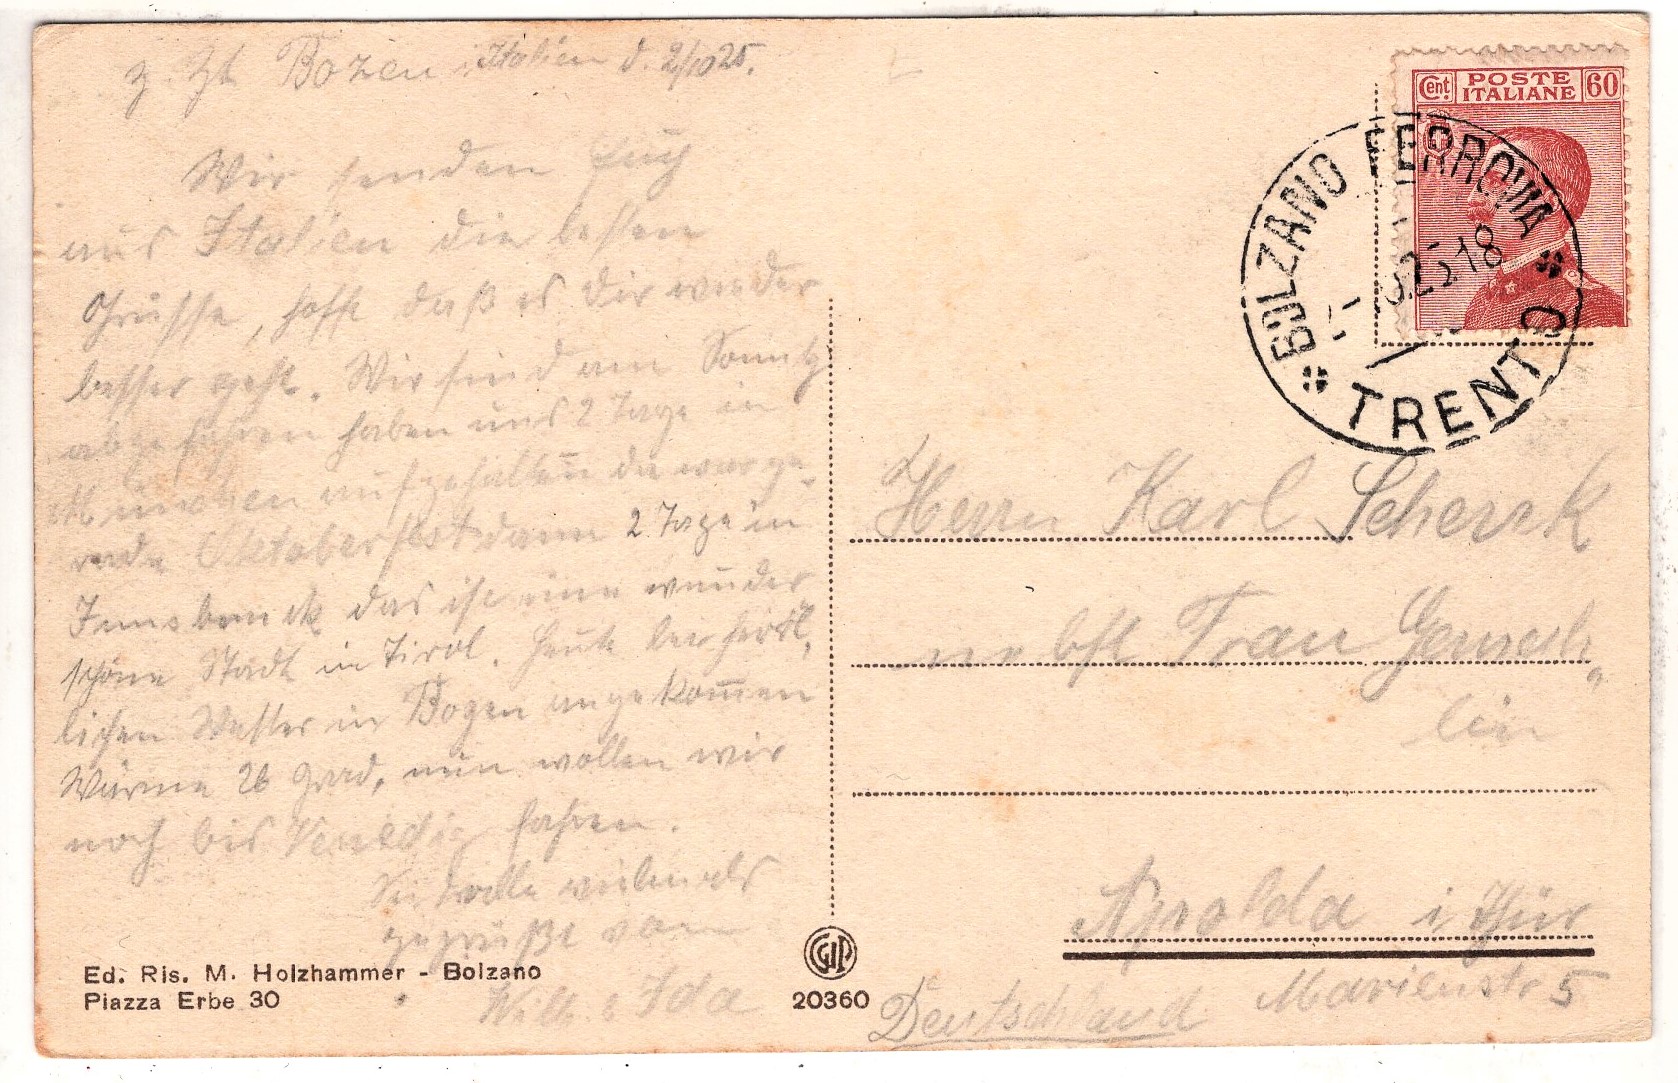 z. Zt Bozen i. Italien d. 2/10 25.
Wir senden Euch
aus Italien die besten
Grüsse, hoffe daß es Dir wieder
besser geht. Wir sind am Sonntg
abgefahren haben uns 2 Tage in
München aufgehalten da war ge-
rade Oktoberfest dann 2 Tage in
Innsbruck das ist eine wunder
schöne Stadt in Tirol. Heute bei herrl,
lichen Wetter in Bozen angekom̅en
Wärme 26 Grad, nun wollen wir
noch bis Venedig fahren.
Seid alle vielmals
gegrüßt von
Willi u Ida
Ed. Ris. M. Holzhammer - Bolzano
Piazza Erbe 30
GIP
20360
Cent. POSTE ITALIANE 60
BOLZANO FERROVIA
25.18
TRENTO
Herrn Karl Schenk
nebst Frau Gemah„
lin
Apolda i Thür
Marienstr 5
Deutschland